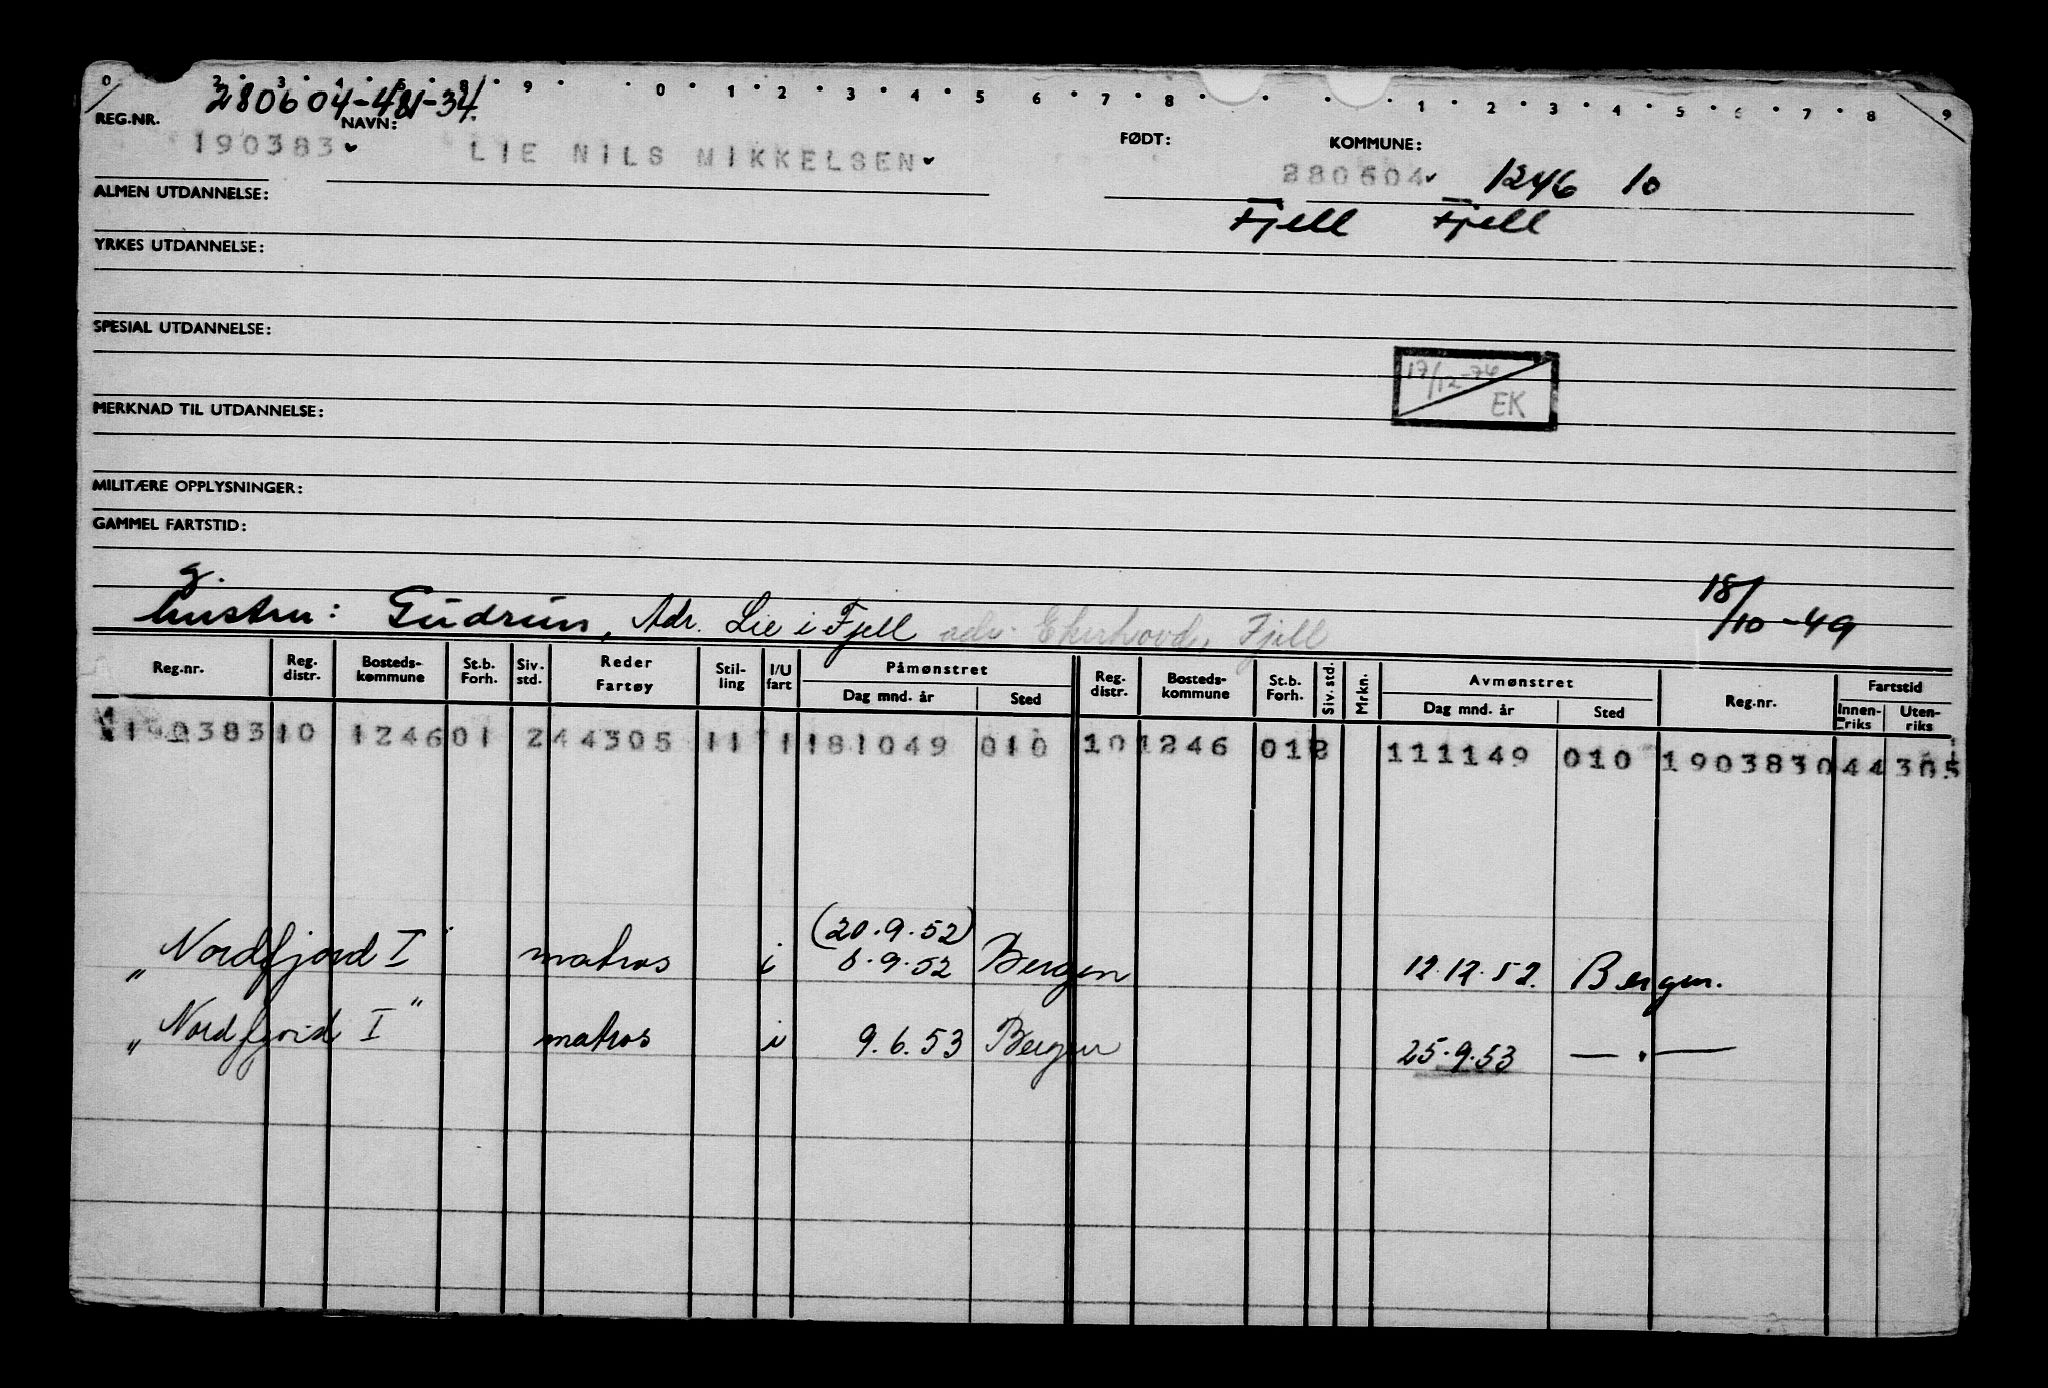 0 2 3 4 5 8 9 0 1 2 3 4 5 6 7 8 1 2 3 4 5 6 7 8 9
280604-481-34.
REG.NR. NAVN: FØDT: KOMMUNE:
190383 LIE NILS MIKKELSEN 280604 1246 10
ALMEN UTDANNELSE: Fjell Fjell
YRKES UTDANNELSE:
SPESIAL UTDANNELSE:
17/12-76
EK
MERKNAD TIL UTDANNELSE:
MILITÆRE OPPLYSNINGER:
GAMMEL FARTSTID:
g.
hustru: Gudrun, Adr. Lie i Fjell adr. Ekerhovde, Fjell 18/10-49
Reg.nr. Reg. distr. Bosteds-kommune St.b. Forh. Siv. std. Reder Fartøy Stil-ling I/U fart Påmønstret Dag mnd. år Sted Reg. distr. Bosteds-kommune St.b. Forh. Siv. std. Mrkn. Avmønstret Dag mnd. år Sted Reg.nr. Fartstid Innen-riks Uten-riks
190383 10 1246 01 2 44305 11 1 181049 010 10 1246 01 2 111149 010 1903830 44 305
„Nordfjord I" matros i (20.9.52) 8.9.52 Bergen 12.12.52. Bergen.
„Nordfjord I" matros i 9.6.53 Bergen 25.9.53 — " —